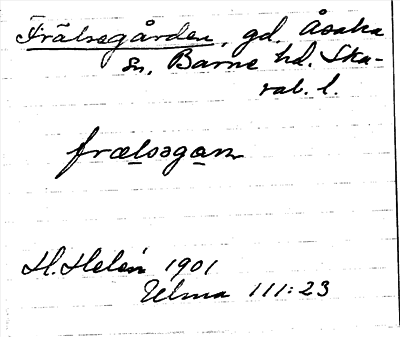 Frälsegården, gd, Åsaka
sn, Barne hd. Ska-
rab. l.
frælsəgan
H. Helén 1901
Ulma 111:23